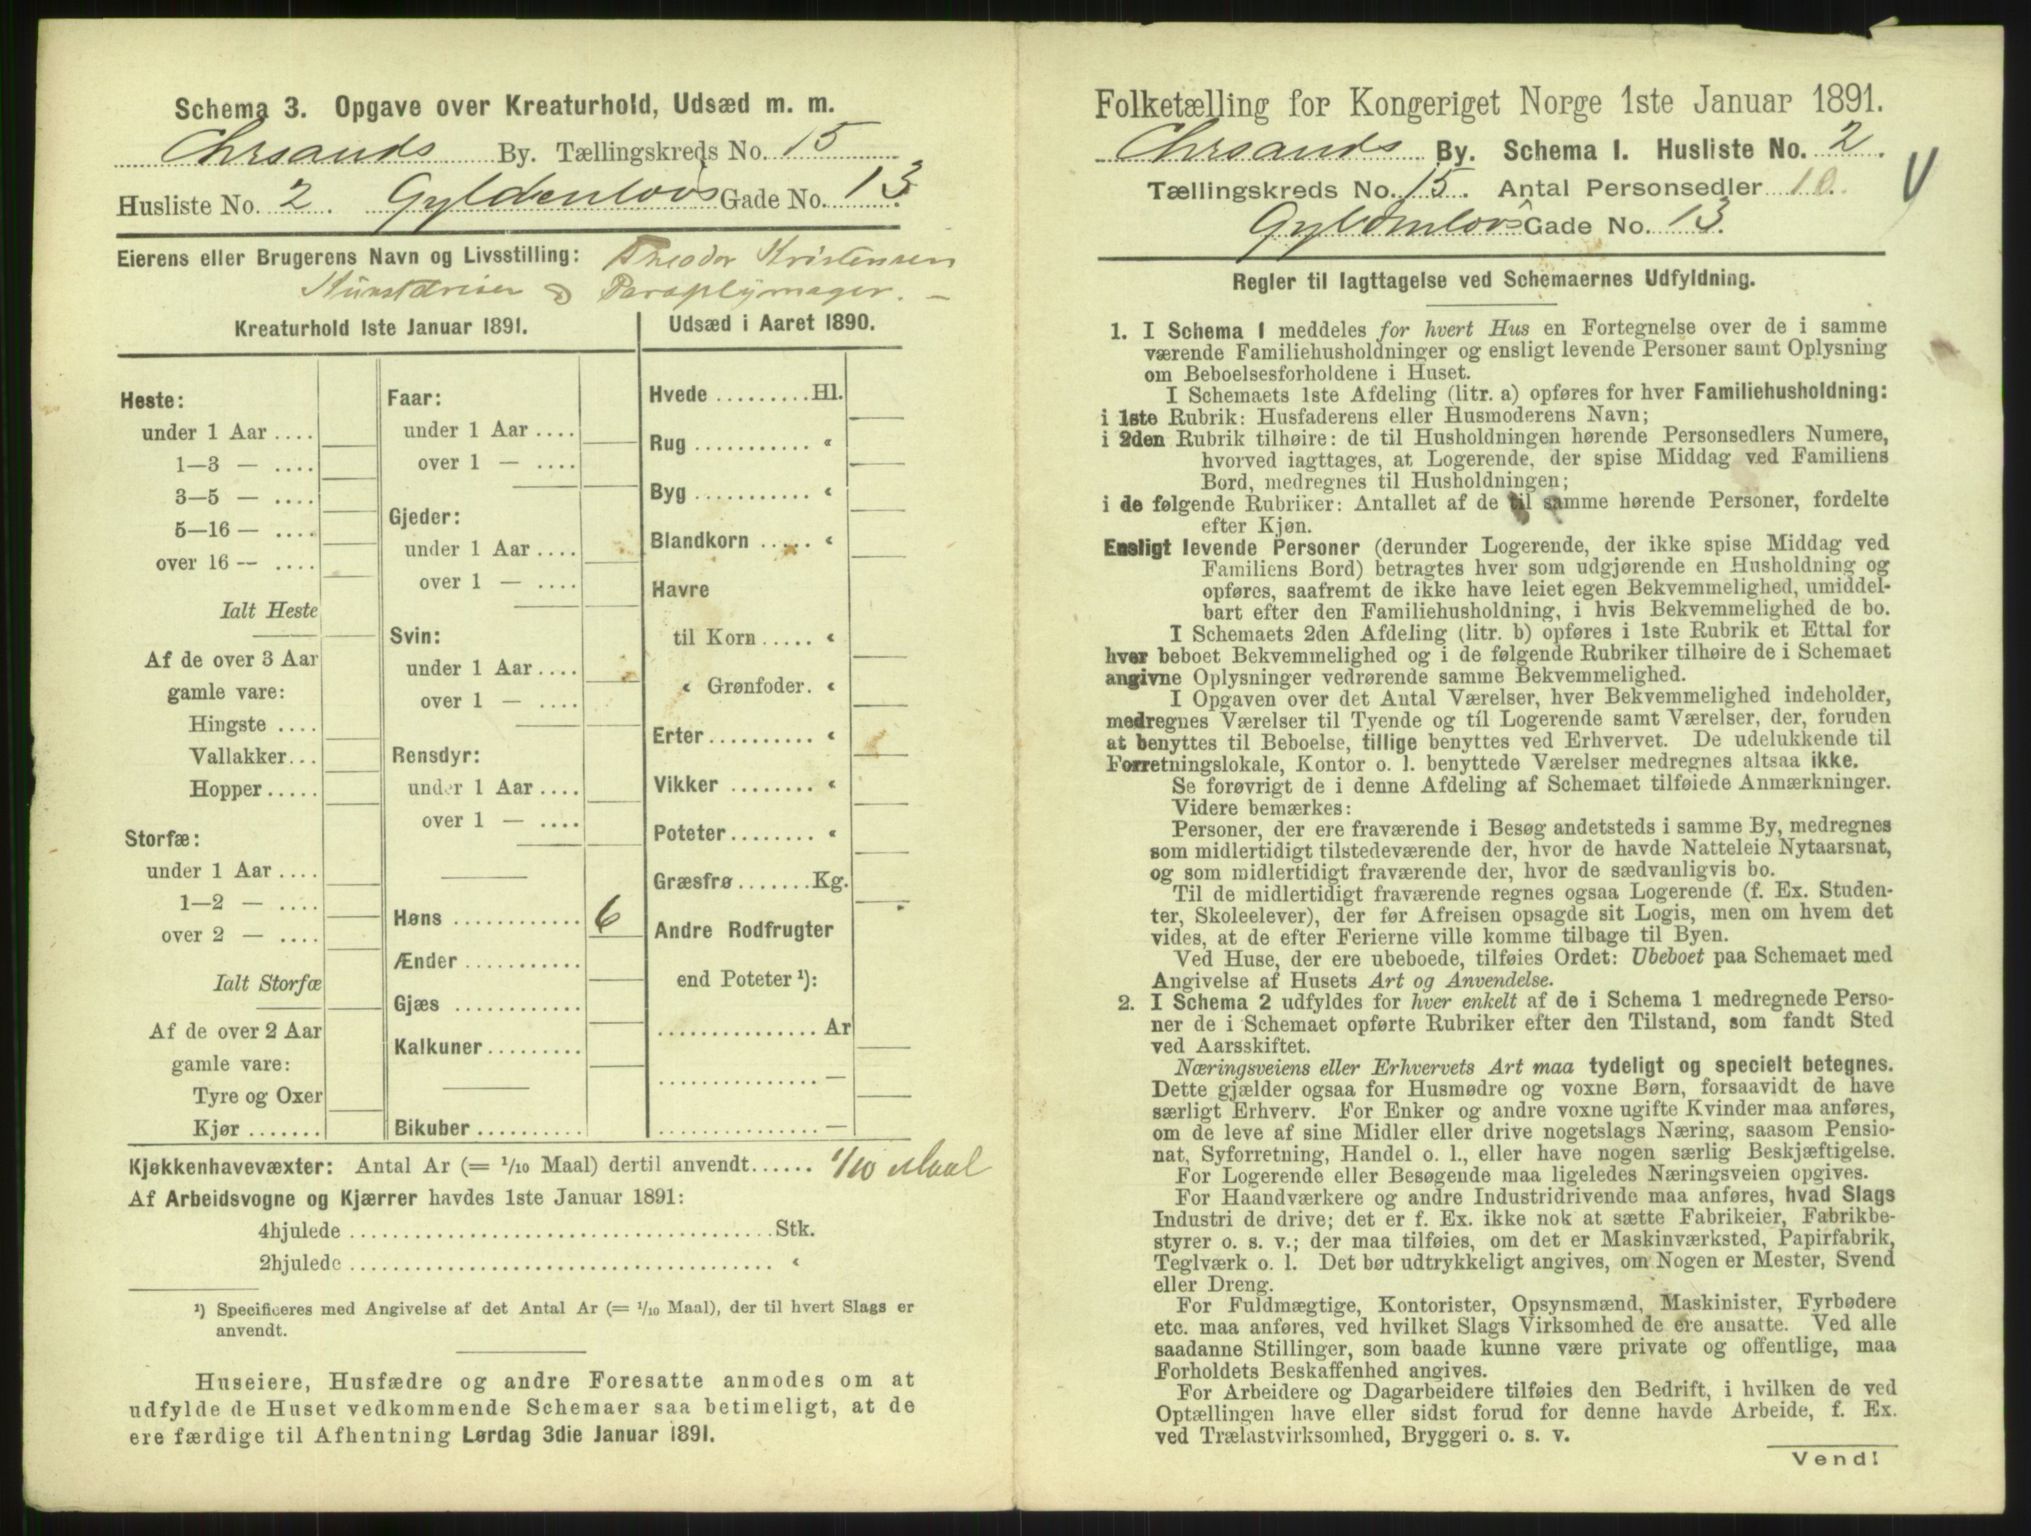 Schema 3. Opgave over Kreaturhold, Udsæd m. m.
Chrsands By. Tællingskreds No. 15
Husliste No. 2. Gyldenløvs Gade No. 13.
Eierens eller Brugerens Navn og Livsstilling: Theodor Kristensen
Kunstdreier & Paraplymager. –
Kreaturhold 1ste Januar 1891.
Heste:
under 1 Aar ....
1—3 — ....
3—5 — ....
5—16 — ....
over 16 — ....
Ialt Heste
Af de over 3 Aar
gamle vare:
Hingste ....
Vallakker...
Hopper.....
Storfæ:
under 1 Aar ....
1—2 — ....
over 2 — ....
Ialt Storfæ
Af de over 2 Aar
gamle vare:
Tyre og Oxer
Kjør .......
Faar:
under 1 Aar ....
over 1 — ....
Gjeder:
under 1 Aar ....
over 1 — ....
Svin:
under 1 Aar ....
over 1 — ....
Rensdyr:
under 1 Aar ....
over 1 — ....
Høns ............ 6
Ænder ...........
Gjæs ............
Kalkuner.........
Bikuber ..........
Udsæd i Aaret 1890.
Hvede .........Hl.
Rug ........... «
Byg ........... «
Blandkorn ..... «
Havre
til Korn ..... «
« Grønfoder. «
Erter.......... «
Vikker ........ «
Poteter........ «
Græsfrø .......Kg.
Andre Rodfrugter
end Poteter ¹):
............... Ar
............... —
............... —
Kjøkkenhavevæxter: Antal Ar (= 1/10 Maal) dertil anvendt...... 1/10 Maal
Af Arbeidsvogne og Kjærrer havdes 1ste Januar 1891:
4hjulede ......................................Stk.
2hjulede ...................................... «
¹) Specificeres med Angivelse af det Antal Ar (= 1/10 Maal), der til hvert Slags er
anvendt.
Huseiere, Husfædre og andre Foresatte anmodes om at
udfylde de Huset vedkommende Schemaer saa betimeligt, at de
ere færdige til Afhentning Lørdag 3die Januar 1891.
Folketælling for Kongeriget Norge 1ste Januar 1891.
Chrsands By. Schema 1. Husliste No. 2.
Tællingskreds No. 15. Antal Personsedler 10.
Gyldenløvs Gade No. 13.
Regler til Iagttagelse ved Schemaernes Udfyldning.
1. I Schema 1 meddeles for hvert Hus en Fortegnelse over de i samme
værende Familiehusholdninger og ensligt levende Personer samt Oplysning
om Beboelsesforholdene i Huset.
I Schemaets 1ste Afdeling (litr. a) opføres for hver Familiehusholdning:
i 1ste Rubrik: Husfaderens eller Husmoderens Navn;
i 2den Rubrik tilhøire: de til Husholdningen hørende Personsedlers Numere,
hvorved iagttages, at Logerende, der spise Middag ved Familiens
Bord, medregnes til Husholdningen;
i de følgende Rubriker: Antallet af de til samme hørende Personer, fordelte
efter Kjøn.
Ensligt levende Personer (derunder Logerende, der ikke spise Middag ved
Familiens Bord) betragtes hver som udgjørende en Husholdning og
opføres, saafremt de ikke have leiet egen Bekvemmelighed, umiddel-
bart efter den Familiehusholdning, i hvis Bekvemmelighed de bo.
I Schemaets 2den Afdeling (litr. b) opføres i 1ste Rubrik et Ettal for
hver beboet Bekvemmelighed og i de følgende Rubriker tilhøire de i Schemaet
angivne Oplysninger vedrørende samme Bekvemmelighed.
I Opgaven over det Antal Værelser, hver Bekvemmelighed indeholder,
medregnes Værelser til Tyende og til Logerende samt Værelser, der, foruden
at benyttes til Beboelse, tillige benyttes ved Erhvervet. De udelukkende til
Forretningslokale, Kontor o. l. benyttede Værelser medregnes altsaa ikke.
Se forøvrigt de i denne Afdeling af Schemaet tilføiede Anmærkninger.
Videre bemærkes:
Personer, der ere fraværende i Besøg andetsteds i samme By, medregnes
som midlertidigt tilstedeværende der, hvor de havde Natteleie Nytaarsnat,
og som midlertidigt fraværende der, hvor de sædvanligvis bo.
Til de midlertidigt fraværende regnes ogsaa Logerende (f. Ex. Studen-
ter, Skoleelever), der før Afreisen opsagde sit Logis, men om hvem det
vides, at de efter Ferierne ville komme tilbage til Byen.
Ved Huse, der ere ubeboede, tilføies Ordet: Ubeboet paa Schemaet med
Angivelse af Husets Art og Anvendelse.
2. I Schema 2 udfyldes for hver enkelt af de i Schema 1 medregnede Perso-
ner de i Schemaet opførte Rubriker efter den Tilstand, som fandt Sted
ved Aarsskiftet.
Næringsveiens eller Erhvervets Art maa tydeligt og specielt betegnes.
Dette gjælder ogsaa for Husmødre og voxne Børn, forsaavidt de have
særligt Erhverv. For Enker og andre voxne ugifte Kvinder maa anføres,
om de leve af sine Midler eller drive nogetslags Næring, saasom Pensio-
nat, Syforretning, Handel o. l., eller have nogen særlig Beskjæftigelse.
For Logerende eller Besøgende maa ligeledes Næringsveien opgives.
For Haandværkere og andre Industridrivende maa anføres, hvad Slags
Industri de drive; det er f. Ex. ikke nok at sætte Fabrikeier, Fabrikbe-
styrer o. s. v.; der maa tilføies, om det er Maskinværksted, Papirfabrik,
Teglværk o. l. Det bør udtrykkeligt angives, om Nogen er Mester, Svend
eller Dreng.
For Fuldmægtige, Kontorister, Opsynsmænd, Maskinister, Fyrbødere
etc. maa anføres, ved hvilket Slags Virksomhed de ere ansatte. Ved alle
saadanne Stillinger, som baade kunne være private og offentlige, maa
Forholdets Beskaffenhed angives.
For Arbeidere og Dagarbeidere tilføies den Bedrift, i hvilken de ved
Optællingen have eller sidst forud for denne havde Arbeide, f. Ex.
ved Trælastvirksomhed, Bryggeri o. s. v.
Vend!